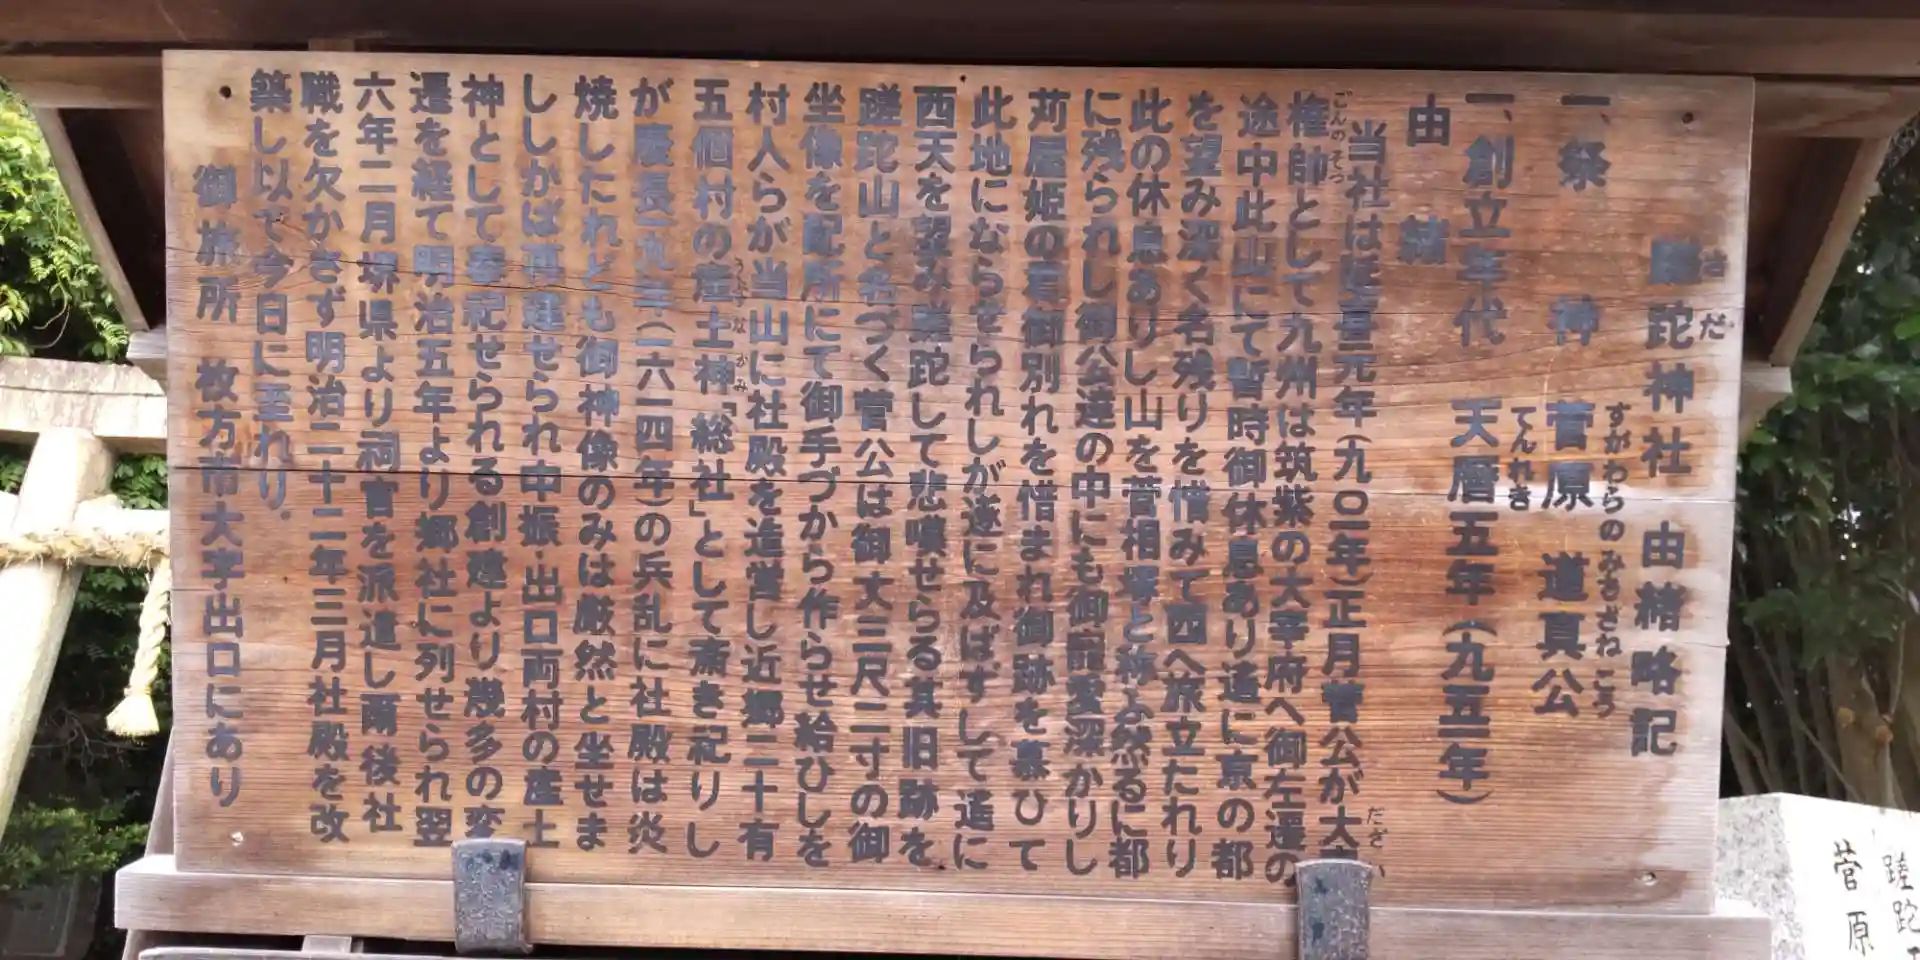 蹉跎神社 由緒略記
さだ
一、祭神 菅原 道真公
すがわらのみちざねこう
一、創立年代 天暦五年(九五一年)
てんれき
由緒
当社は延喜元年(九〇一年)正月菅公が大宰
だざい
権帥として九州は筑紫の大宰府へ御左遷の
ごんのそつ
途中此山にて暫時御休息あり遙に京の都
を望み深く名残りを惜みて西へ旅立たれり
此の休息ありし山を菅相塚と称ふ然るに都
に残られし御公達の中にも御寵愛深かりし
苅屋姫の君御別れを惜まれ御跡を慕ひて
此地にならせられしが遂に及ばずして遙に
西天を望み蹉跎して悲嘆せらる其旧跡を
蹉跎山と名づく菅公は御丈三尺二寸の御
坐像を配所にて御手づから作らせ給ひしを
村人らが当山に社殿を造営し近郷二十有
五個村の産土神「総社」として斎き祀りし
うぶすなかみ
が慶長十九年(一六一四年)の兵乱に社殿は炎
焼したれども御神像のみは厳然と坐せま
ししかば再建せられ中振・出口両村の産土
神として奉祀せられる創建より幾多の変
遷を経て明治五年より郷社に列せられ翌
六年二月堺県より祠官を派遣し爾後社
職を欠かさず明治二十二年三月社殿を改
築し以て今日に至れり.
御旅所 枚方市大字出口にあり
蹉跎
菅原